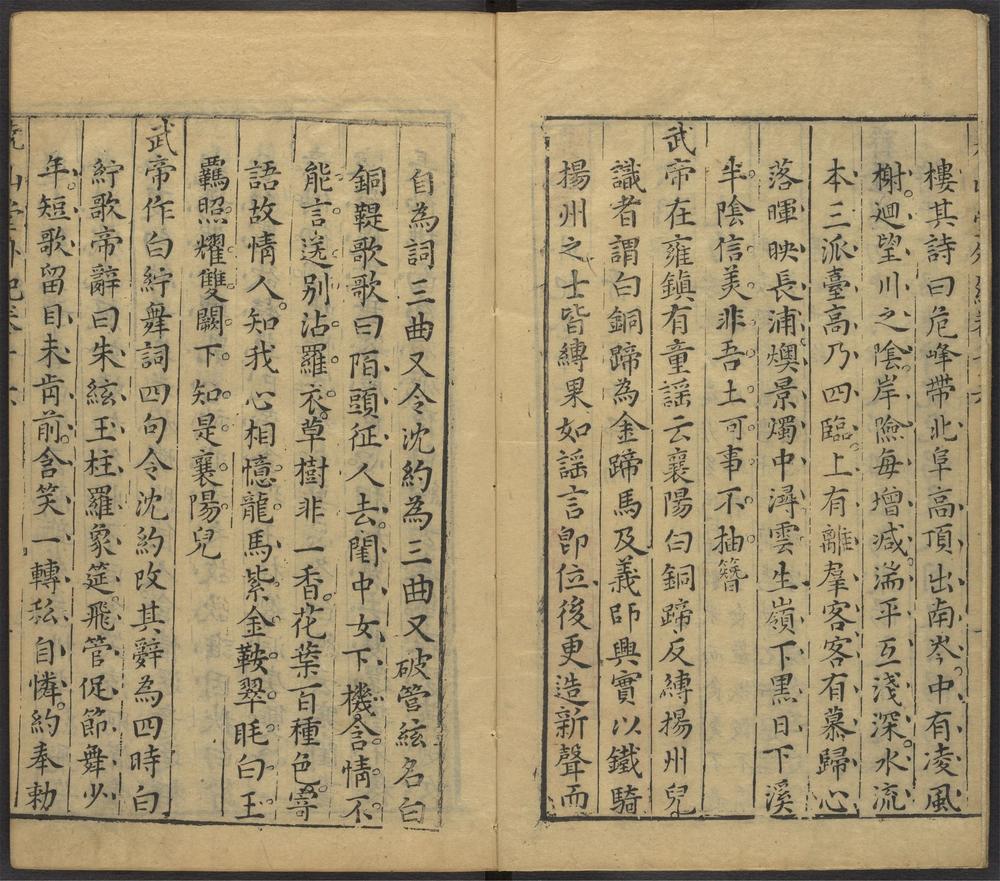 樓其詩曰危峰帶北阜高頂出南岑中有凌風
榭迴望川之陰岸險每增減湍平互淺深水流
本三派臺高乃四臨上有離羣客客有慕歸心
落暉映長浦燠景燭中潯雲生嶺下黑日下溪
半陰信美非吾土可事不抽簪
武帝在雍鎮有童謠云襄陽白銅蹄反縛揚州兒
識者謂白銅蹄為金蹄馬及義師興實以鐵騎
揚州之士皆縛果如謠言即位後更造新聲而
自為詞三曲又令沈約為三曲又破管絃名白
銅鞮歌歌曰陌頭征人去閨中女下機含情不
能言送別沾羅衣草樹非一香花葉百種色寄
語故情人知我心相憶龍馬紫金鞍翠眊白玉
羈照耀雙闕下知是襄陽兒
武帝作白紵舞詞四句令沈約改其辭為四時白
紵歌帝辭曰朱絃玉柱羅象筵飛管促節舞少
年短歌留目未肯前含笑一轉私自憐約奉勅